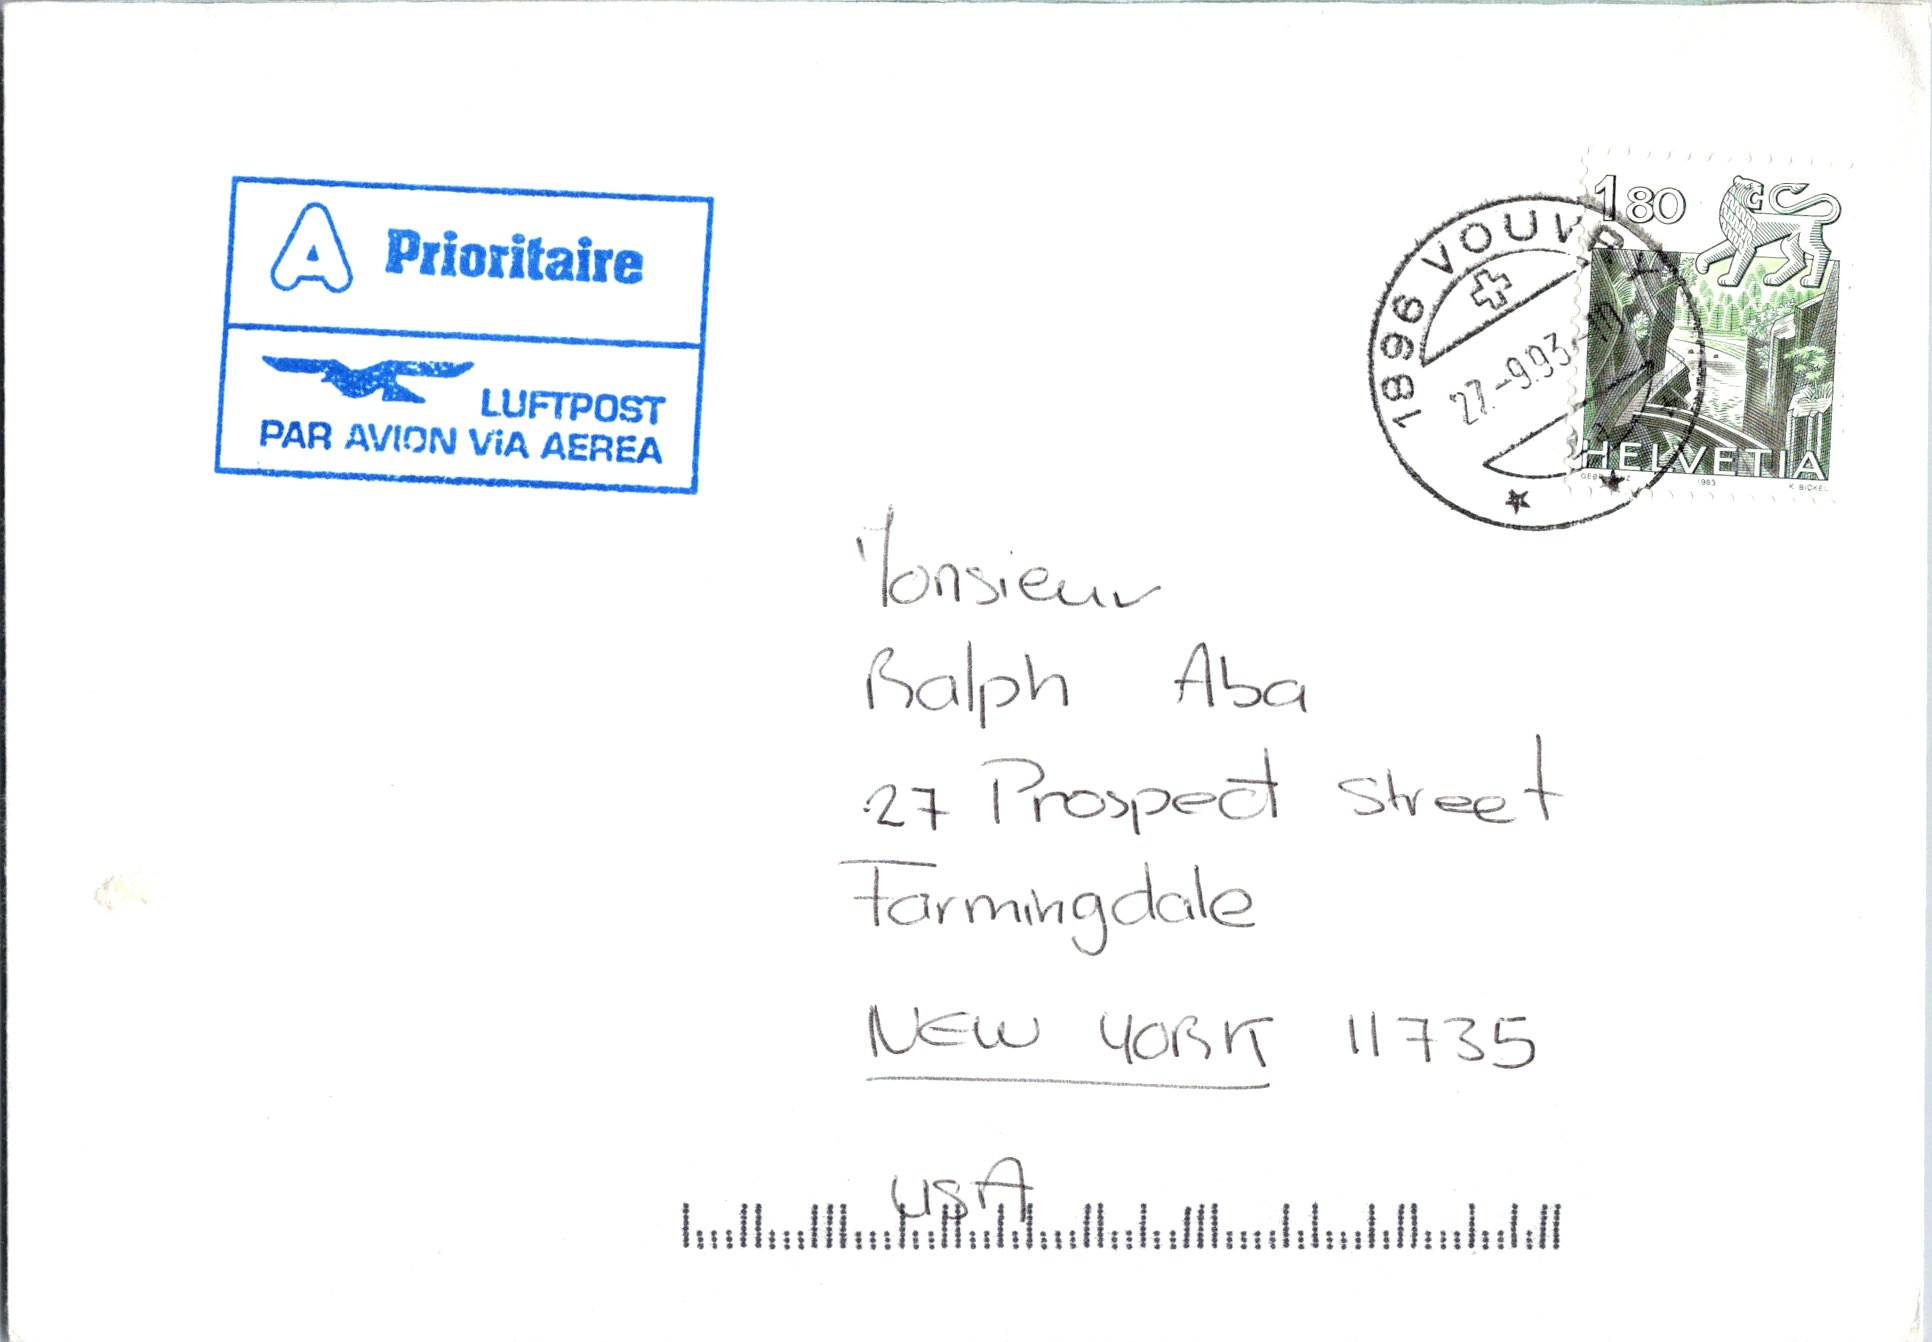 A Prioritaire
LUFTPOST
PAR AVION ViA AEREA
1896 VOUVRY
27.-9.93.-19
1 80
HELVETIA
1983
K. BICKEL
Monsieur
Ralph Aba
27 Prospect Street
Farmingdale
NEW YORK 11735
USA